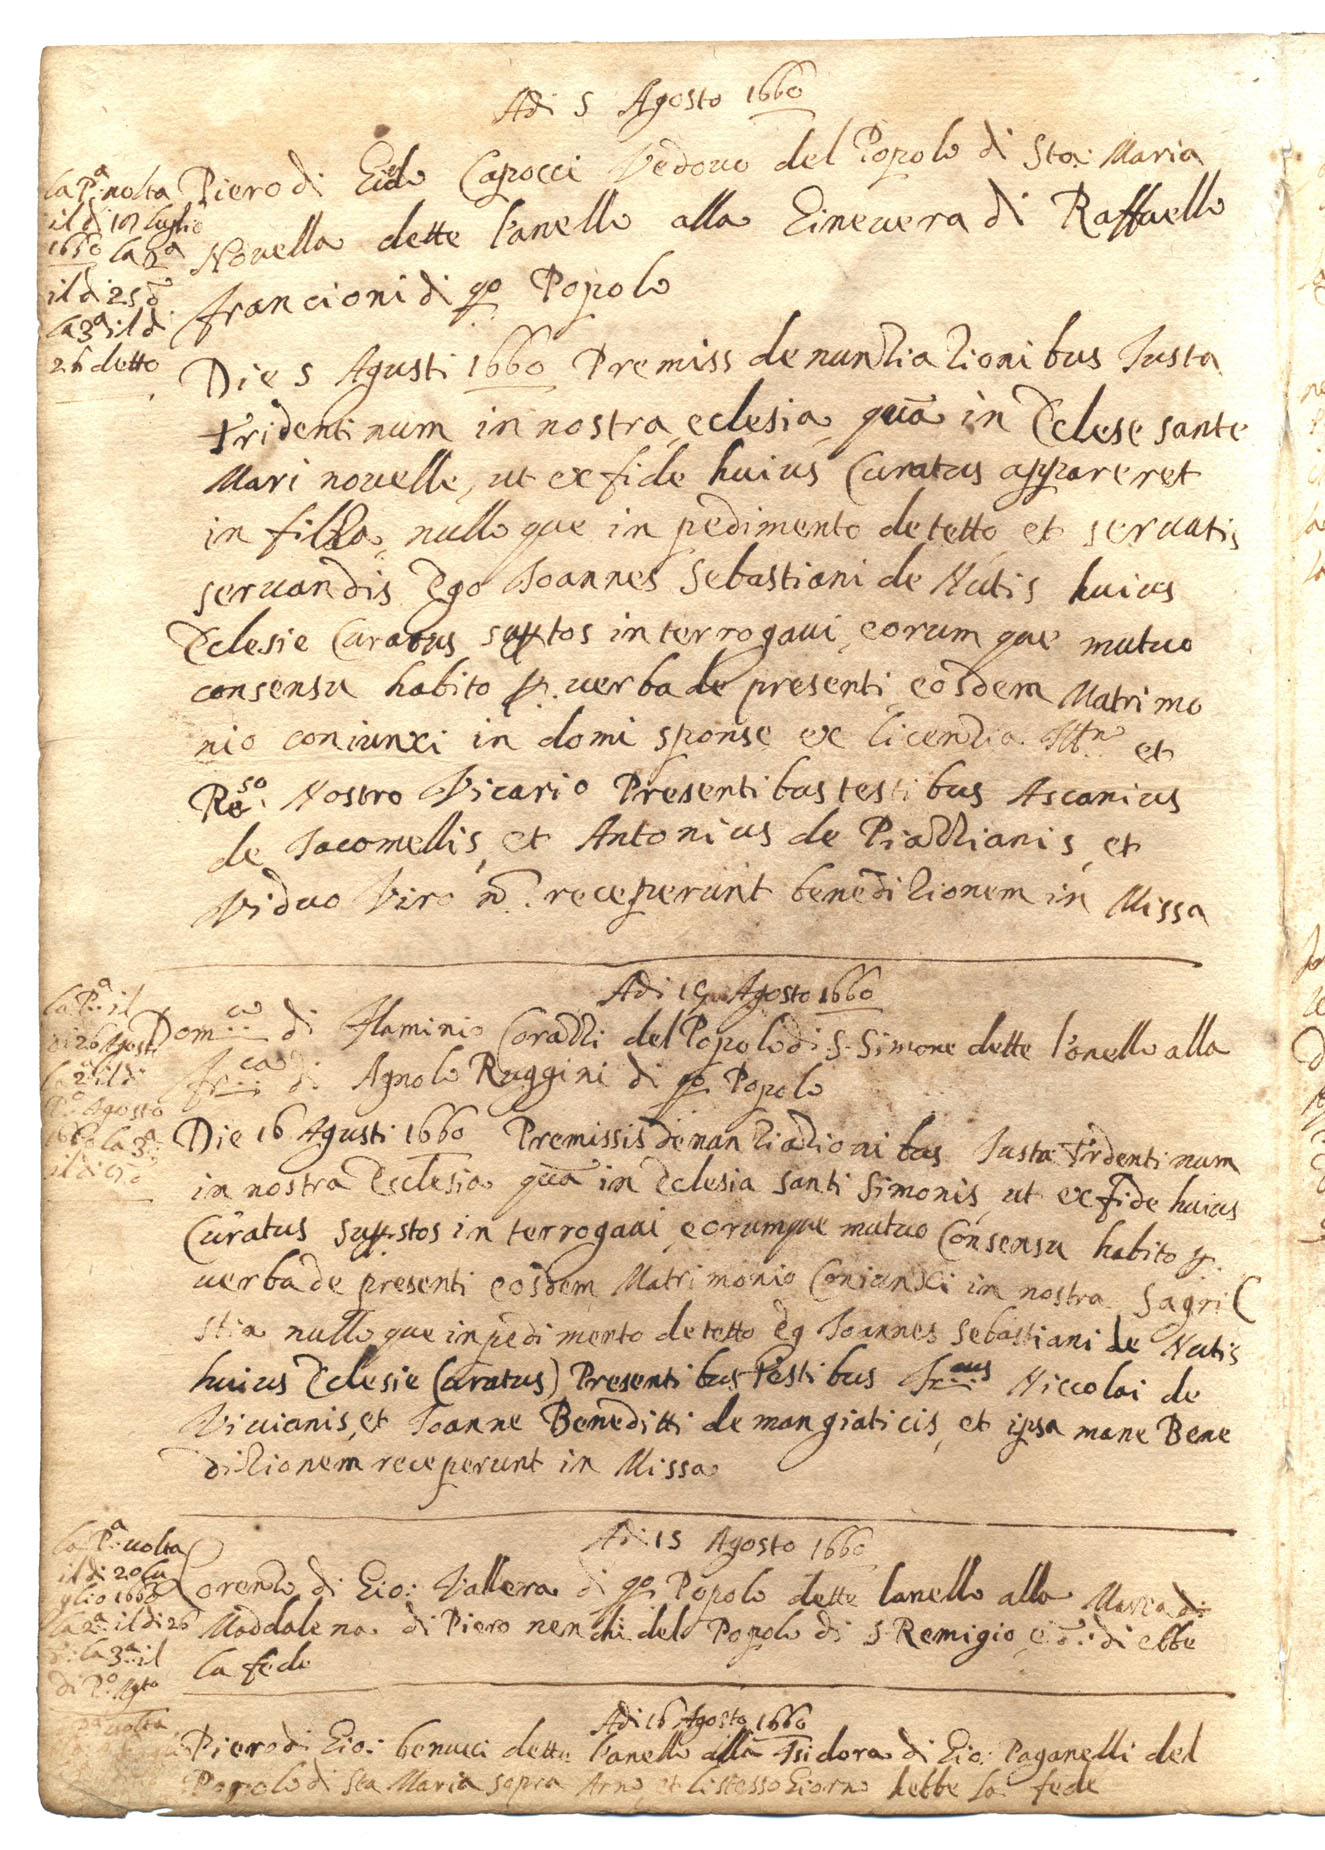 Adi 5 Agosto 1660
la P.a uolta
il di luglio
1660 la 2a
il di 25 d
la 3a il d
26 detto
Piero di Capocci Vedouo del Popolo di Sta: Maria
Nouella dette l'anello alla Gineuera di Raffaello
francioni di qo Popolo
Die 5 Agusti 1660 Premiss denunziazionibus Iusta
tridentinum in nostra eclesia, quā in Eclese sante
Mari nouelle, ut ex fide huius Curatus appareret
in filza, nulloque in pedimento detetto et seruatis
seruandis Ego Ioannes Sebastiani de Nutis huius
Eclesie Curatus suptos interrogaui, eorum que mutuo
consensu habito p. uerba de presenti, eosdem Matrimo
nio coniunxi in domi sponse ex licenzia et
Re.so Nostro Vicario Presentibus testibus Ascanius
de Iacomellis, et Antonius de Piazzianis, et
Viduo Viro nō. receperunt benedizionem in Missa
Adi Agosto 1660
la P.a il
di 26 Agosti
la 2a il di
P.o Agosto
1660 la 3a
il di
Dom.ca di Flaminio Corazzi del Popolo di S. Simone dette l'anello alla
fr.ca di Agnolo Ruggini di qo Popolo
Die 16 Agusti 1660 Premissis denanziazionibus Iusta Trdentinum
in nostra Esclesia quā in Eclesia santi Simonis, ut ex fide huius
Curatus supstos interrogaui, eorumque mutuo Consensu habito p.
uerba de presenti eosdem Matrimonio Coniunxi in nostra Sagri(
stia nulloque inpedimento detetto Eg Ioannes Sebastiani de Nutis
huius Eclesie (uratus) Presentibus Testibus Fr..cus Niccolai de
Viuianis, et Ioanne Beneditti de mangiaticis, et ipsa mane Bene
dizionem receperunt in Missa
Adi 15 Agosto 1660
la P.a uolta
il di 20 lu
glio 1660
la 2.a il di 26
d: la 3.a il
di P.o Agto
Lorenzo di Gio: Vallera di qo Popolo dette lanello alla Maria di
Maddalena di Piero nenchi del Popolo di S. Remigio, e d: di ebbe
la fede
Adi 16 Agosto 1660
P.a uolta
Piero di Gio: benucci dette l'anello alla Isidora di Gio: Paganelli del
Popolo di Sta Maria sopra Arno, et listesso Giorno hebbe la fede